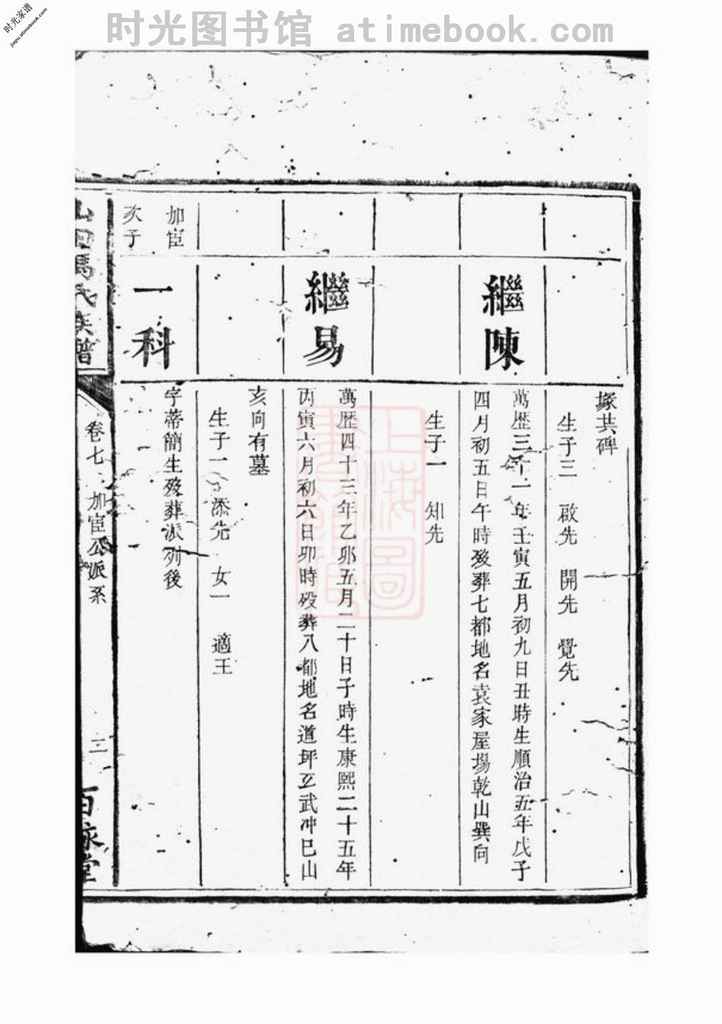 时光图书馆 atimebook.com
时光家谱
jiapu.atimebook.com
塚共碑
生子三 啟先 開先 覺先
繼陳
萬歷三十一年壬寅五月初九日丑時生順治五年戊子
四月初五日午時歿葬七都地名袁家屋場乾山巽向
生子一 知先
繼易
萬歷四十三年乙卯五月二十日子時生康熙二十五年
丙寅六月初六日卯時歿葬八都地名道坪立武冲巳山
亥向有墓
生子一 添先 女一 適王
加宦
次子
一科
字蒂簡生歿葬派列後
馬氏族譜
卷七 加宦公派系
三
百
堂
上海圖